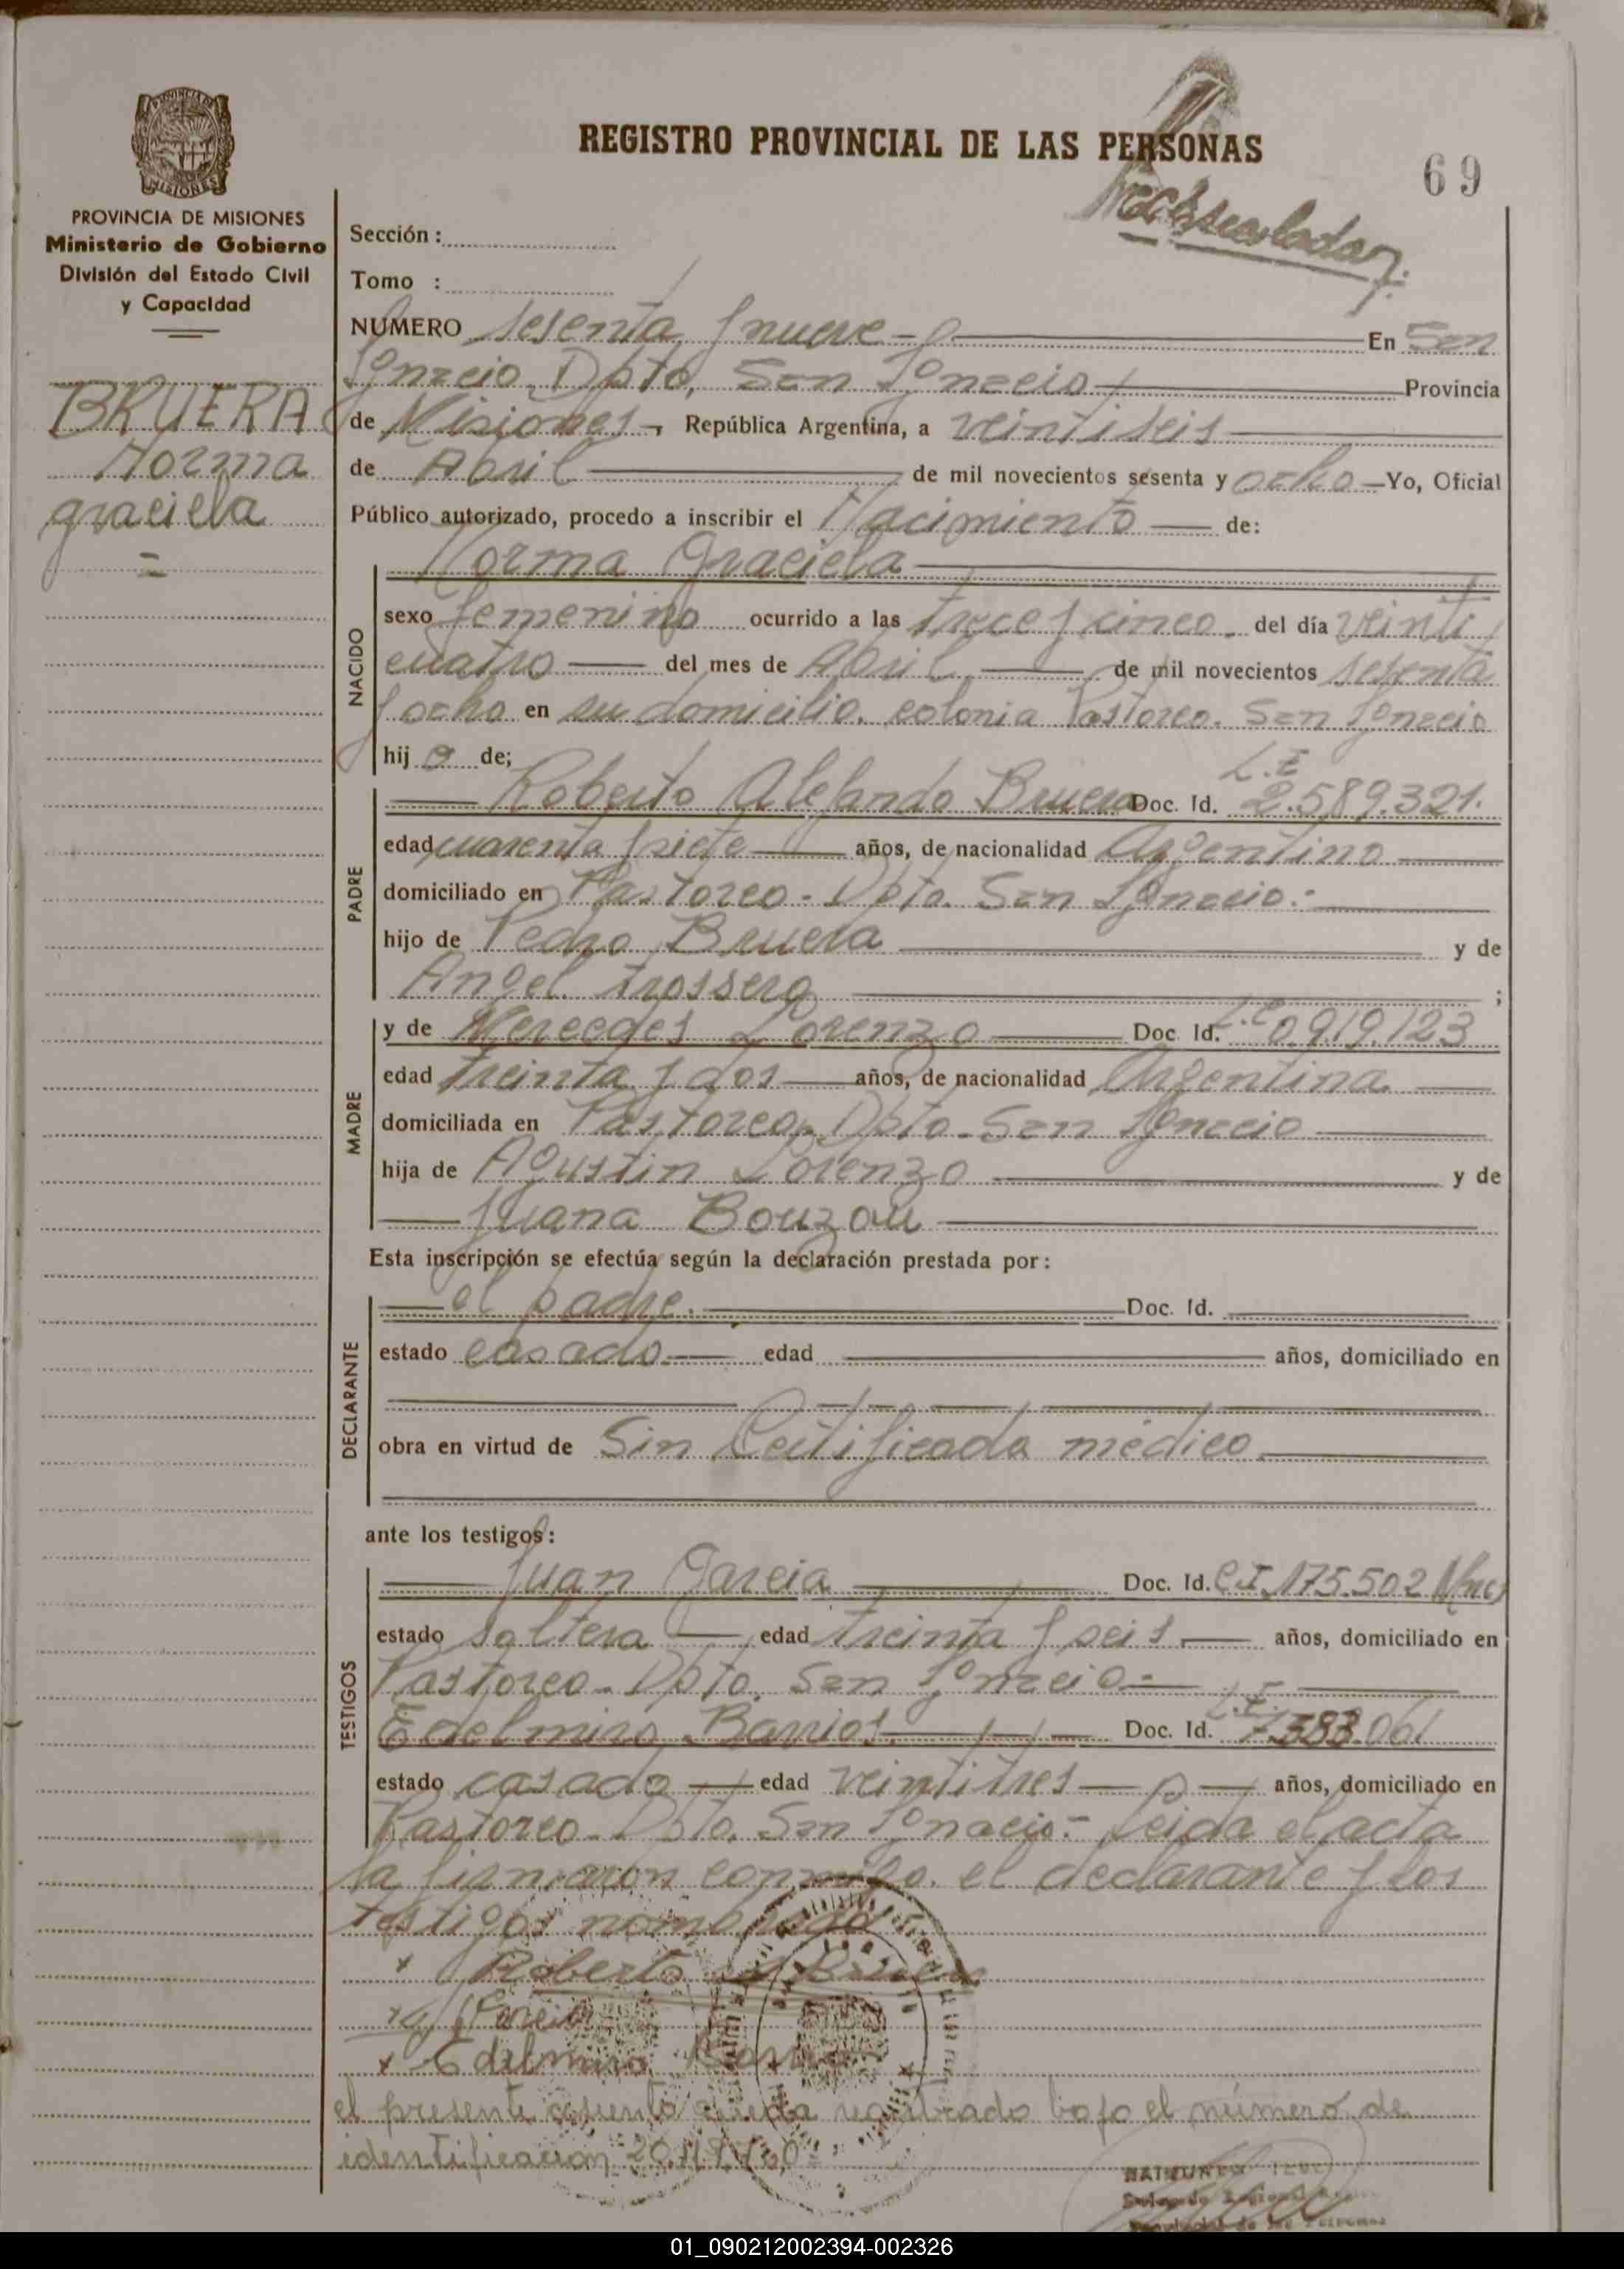 REGISTRO PROVINCIAL DE LAS PERSONAS
69
PROVINCIA DE MISIONES
Ministerio de Gobierno
División del Estado Civil
y Capacidad
BRUERA
Norma
graciela
Sección :
Tomo :
NUMERO sesenta y nueve - En San
Ignacio, Dpto, San Ignacio Provincia
de Misiones, República Argentina, a veintiseis
de Abril de mil novecientos sesenta y ocho - Yo, Oficial
Público autorizado, procedo a inscribir el Nacimiento de:
Norma Graciela
NACIDO
sexo femenino ocurrido a las trece y cinco del día veinti
cuatro del mes de Abril de mil novecientos sesenta
y ocho en su domicilio, colonia Pastoreo. San Ignacio
hij a de;
PADRE
L.E
Roberto Alejandro Bruera Doc. Id. 2.589.321.
edad cuarenta y siete años, de nacionalidad Argentino
domiciliado en Pastoreo - Dpto. San Ignacio.-
hijo de Pedro Bruera y de
Angel Trossero ;
MADRE
y de Mercedes Lorenzo Doc. Id. L.C 0.919.123
edad treinta y dos años, de nacionalidad Argentina
domiciliada en Pastoreo, Dpto. San Ignacio
hija de Agustin Lorenzo y de
Juana Bouzou
Esta inscripción se efectúa según la declaración prestada por:
DECLARANTE
el padre. Doc. Id.
estado casado edad años, domiciliado en
obra en virtud de Sin Certificado médico
ante los testigos:
TESTIGOS
Juan Garcia Doc. Id. C.I. 175.502 Mnes
estado soltero edad treinta y seis años, domiciliado en
Pastoreo - Dpto. San Ignacio -
Edelmiro Barrios Doc. Id. L.E. 7.583.061
estado casado edad veintitres años, domiciliado en
Pastoreo - Dpto. San Ignacio.- Leida el acta
la firmaron conmigo, el declarante y los
testigos nombrados
x Roberto A Bruera
x J Garcia
x Edelmiro Barrios
el presente asiento queda registrado bajo el número de
identificación
01_090212002394-002326